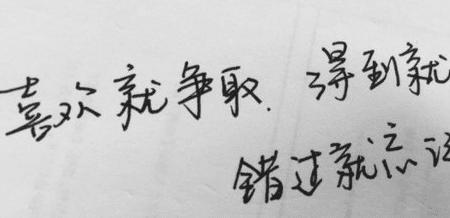 喜欢就争取.得到就
错过就忘